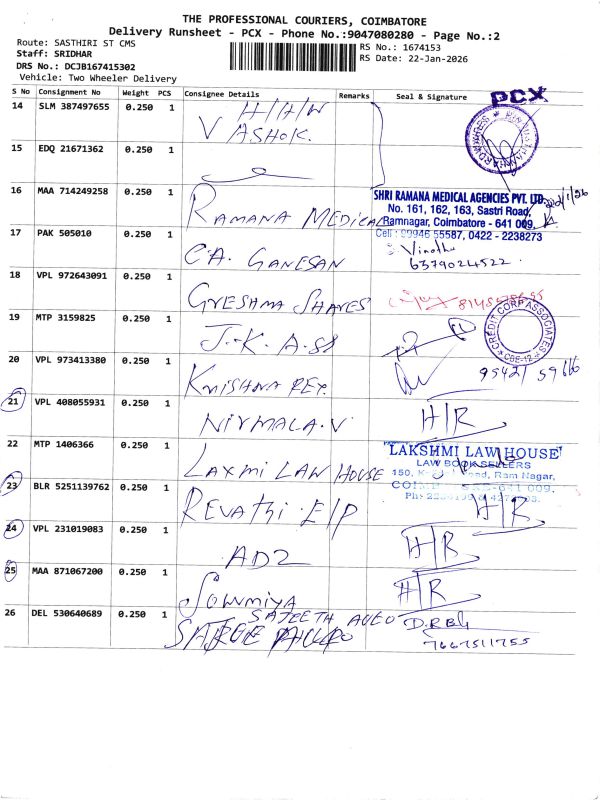 THE PROFESSIONAL COURIERS, COIMBATORE
Delivery Runsheet - PCX - Phone No.:9047080280 - Page No.:2
Route: SASTHIRI ST CMS
RS No.: 1674153
Staff: SRIDHAR
RS Date: 22-Jan-2026
DRS No.: DCJB167415302
Vehicle: Two Wheeler Delivery
S No Consignment No Weight PCS Consignee Details Remarks Seal & Signature
PCX
14 SLM 387497655 0.250 1 H/H/W
V ASHOK.
15 EDQ 21671362 0.250 1
16 MAA 714249258 0.250 1 RAMANA MEDICAL
SHRI RAMANA MEDICAL AGENCIES PVT. LTD.
No. 161, 162, 163, Sastri Road,
Ramnagar, Coimbatore - 641 009.
Cell : 99946 55587, 0422 - 2238273
17 PAK 505010 0.250 1 C.A. GANESAN
6379024522
18 VPL 972643091 0.250 1 GRESHMA SHARES
19 MTP 3159825 0.250 1 J.K. A.SS
CREDIT CORP ASSOCIATES
CBE-12
20 VPL 973413380 0.250 1 KRISHNA REY.
21 VPL 408055931 0.250 1 NIRMALA.V H/R
22 MTP 1406366 0.250 1 LAXMI LAW HOUSE
LAKSHMI LAW HOUSE
LAW BOOK SELLERS
Ram Nagar,
641 009.
23 BLR 5251139762 0.250 1 REVATHI E/P H/R
24 VPL 231019083 0.250 1 AD2 H/R
25 MAA 871067200 0.250 1 SOWMIYA H/R
26 DEL 530640689 0.250 1
7667511755